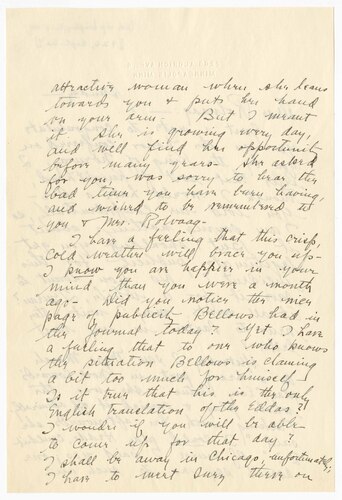 attractive woman when she leans
towards you & puts her hand
on your arm. But I meant
it she is growing every day,
and will find her opportunity
before many years. She asked
for you, was sorry to hear the
bad times you have been having
and wished to be remembered to
you & Mrs. Rolvaag -
I have a feeling that this crisp,
cold weather will brace you up -
I know you are happier in your
mind than you were a month
ago - Did you notice the nice
page of publicity Bellows had in
the Journal today? Yet I have
a feeling that to one who knows
the situation Bellows is claiming
a bit too much for himself!
Is it true that his is the only
English translation of the Eddas?
I wonder if you will be able
to come up for that day?
I shall be away in Chicago, unfortunately,
I have to meet there on